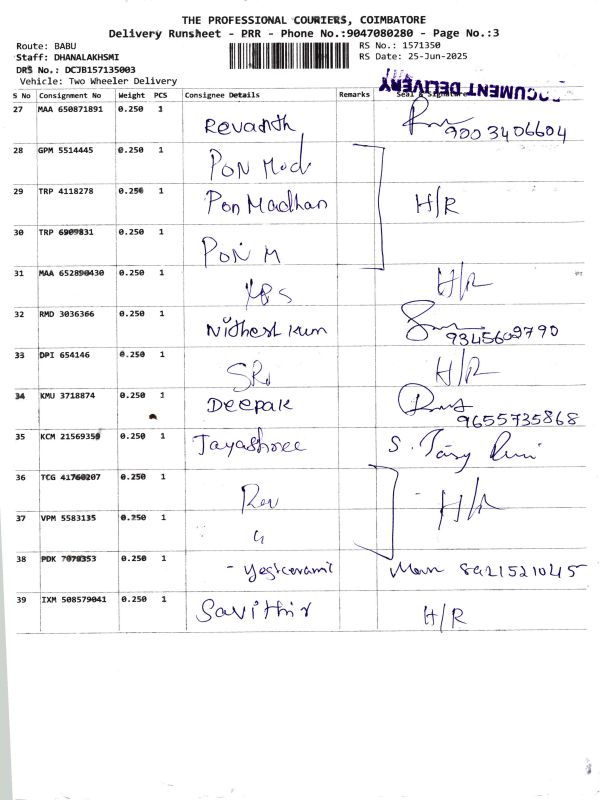 THE PROFESSIONAL COURIERS, COIMBATORE
Delivery Runsheet - PRR - Phone No.:9047080280 - Page No.:3
Route: BABU RS No.: 1571350
Staff: DHANALAKHSMI RS Date: 25-Jun-2025
DRS No.: DCJB157135003
Vehicle: Two Wheeler Delivery
DOCUMENT DELIVERY
S No Consignment No Weight PCS Consignee Details Remarks Seal & Signature
27 MAA 650871891 0.250 1 Revanth 9003406604
28 GPM 5514445 0.250 1 Pon Mad
29 TRP 4118278 0.250 1 Pon Madhan H/R
30 TRP 6909831 0.250 1 Pon M
31 MAA 652890430 0.250 1 H/R
32 RMD 3036366 0.250 1 9345602790
33 DPI 654146 0.250 1 H/R
34 KMU 3718874 0.250 1 Deepak 9655735868
35 KCM 21569359 0.250 1 Jayashree S.
36 TCG 41760207 0.250 1 H/R
37 VPM 5583135 0.250 1
38 PDK 7070353 0.250 1 8921521045
39 IXM 508579041 0.250 1 Savithir H/R